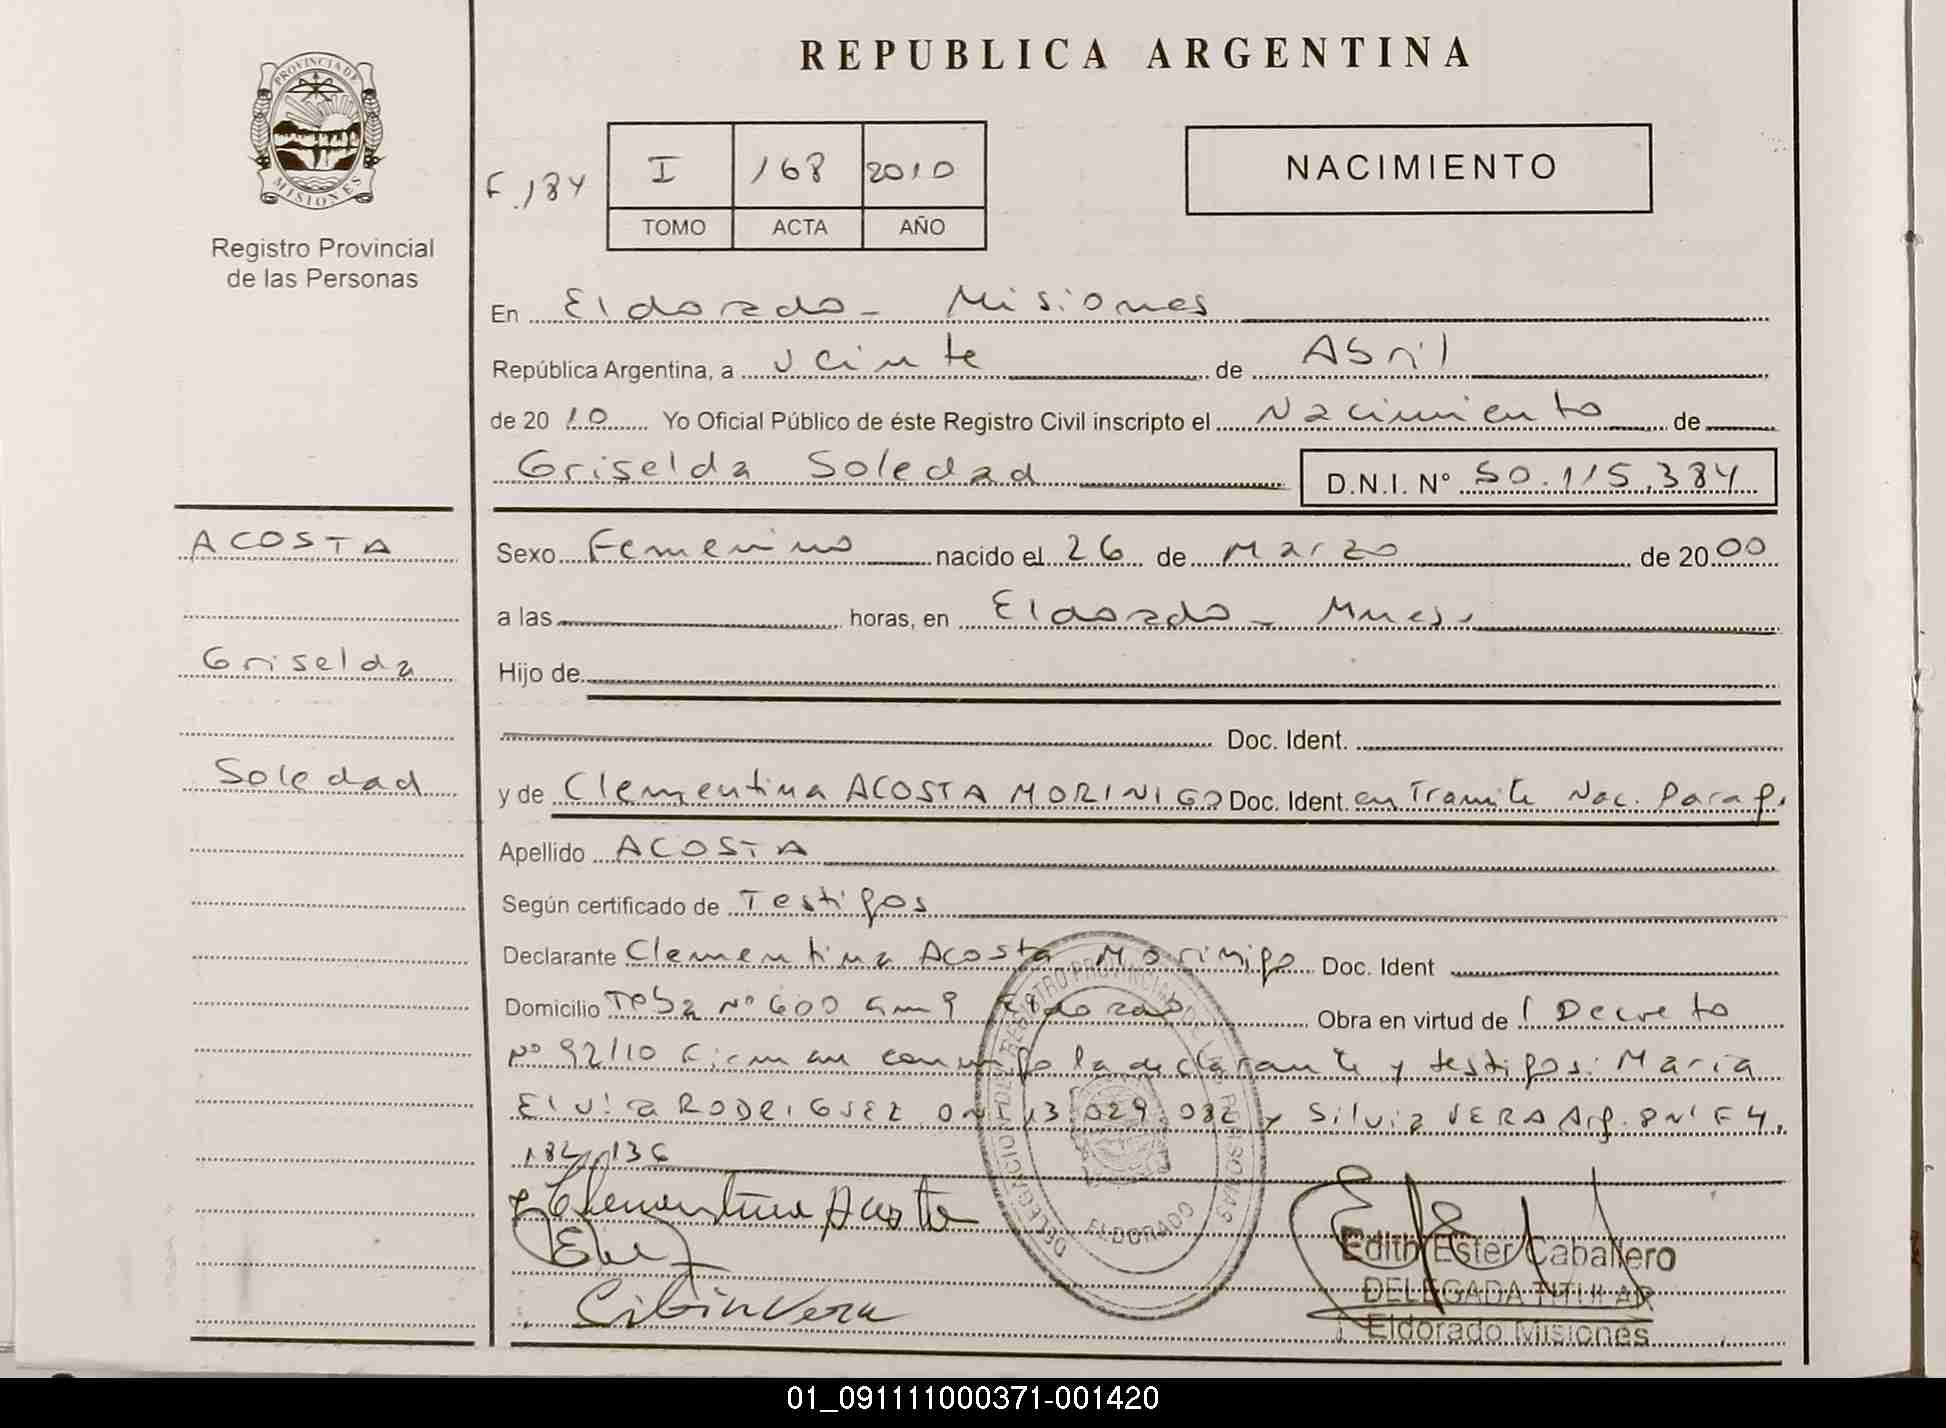 REPUBLICA ARGENTINA
PROVINCIA DE
MISIONES
Registro Provincial
de las Personas
F. 184
I 168 2010
TOMO ACTA AÑO
NACIMIENTO
En Eldorado - Misiones
República Argentina, a veinte de Abril
de 2010 Yo Oficial Público de éste Registro Civil inscripto el Nacimiento de
Griselda Soledad D.N.I. N° 50.115.384
ACOSTA
Griselda
Soledad
Sexo Femenino nacido el 26 de Marzo de 2000
a las horas, en Eldorado - Mnes.
Hijo de
Doc. Ident.
y de Clementina ACOSTA MORINIGO Doc. Ident. en Tramite Nac. Parag.
Apellido ACOSTA
Según certificado de Testigos
Declarante Clementina Acosta Morinigo Doc. Ident
Domicilio Tpba N° 600 Km 9 Eldorado Obra en virtud de Decreto
N° 92/10 Firman conmigo la declarante y testigos: Maria
Elvira RODRIGUEZ DNI 13 029 082 y Silvia VERA Arg. DNI F4.
184 136
Clementina Acosta
Silvia Vera
DELEGACION DEL REGISTRO PROVINCIAL DE LAS PERSONAS
ELDORADO
Edith Ester Caballero
DELEGADA TITULAR
Eldorado Misiones
01_091111000371-001420